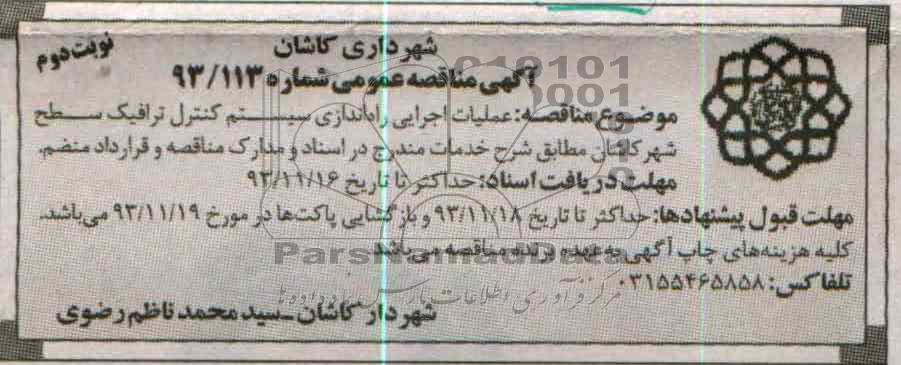 نوبت دوم
شهرداری کاشان
آگهی مناقصه عمومی شماره ۹۳/۱۱۳
موضوع مناقصه: عملیات اجرایی راه‌اندازی سیستم کنترل ترافیک سطح
شهر کاشان مطابق شرح خدمات مندرج در اسناد و مدارک مناقصه و قرارداد منضم.
مهلت دریافت اسناد: حداکثر تا تاریخ ۹۳/۱۱/۱۶
مهلت قبول پیشنهادها: حداکثر تا تاریخ ۹۳/۱۱/۱۸ و بازگشایی پاکت‌ها در مورخ ۹۳/۱۱/۱۹ می‌باشد.
کلیه هزینه‌های چاپ آگهی به عهده برنده مناقصه می‌باشد.
تلفاکس: ۰۳۱۵۵۴۶۵۸۵۸
شهردار کاشان ـ سید محمد ناظم رضوی